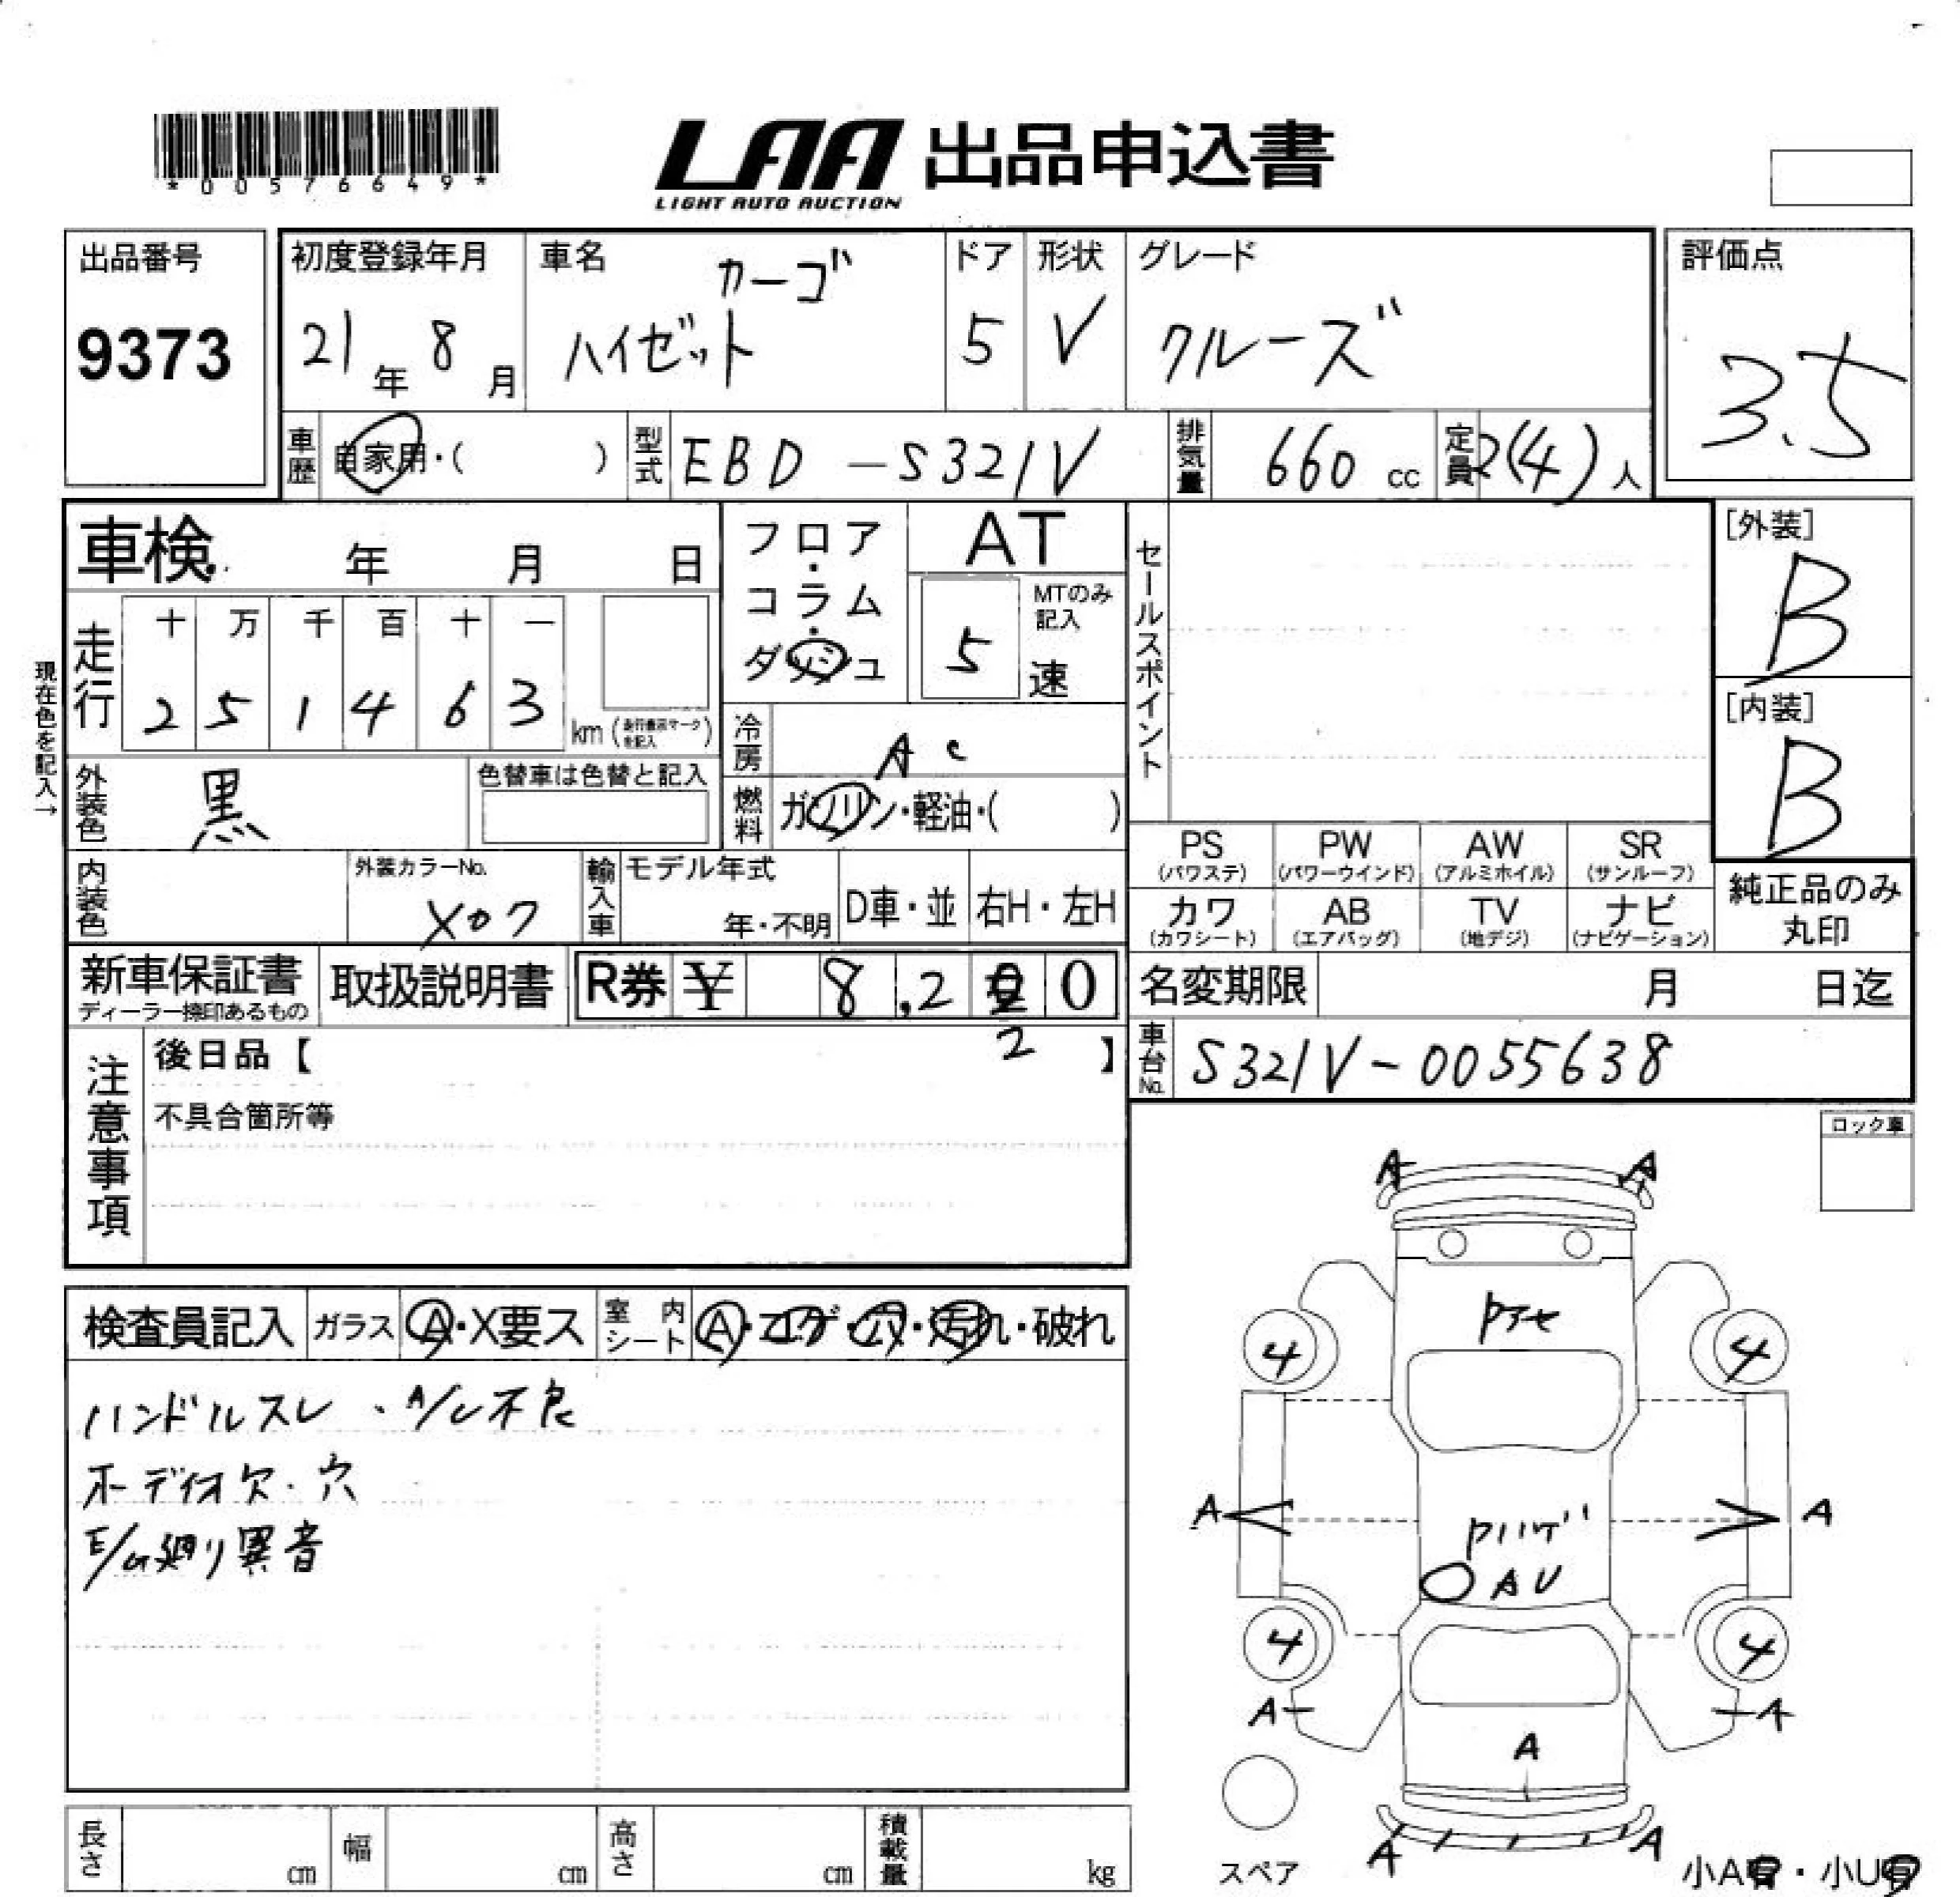 *00576649*
LAA 出品申込書
LIGHT AUTO AUCTION
出品番号
9373
初度登録年月
21年 8月
車名
カーゴ
ハイゼット
ドア
5
形状
V
グレード
クルーズ
評価点
3.5
車歴 自家用・( )
型式 EBD-S321V
排気量 660 cc
定員 2(4)人
車検 年 月 日
フロア・コラム・ダッシュ
AT
MTのみ記入
5 速
セールスポイント
[外装]
B
[内装]
B
現在色を記入→
走行
十 万 千 百 十 一
2 5 1 4 6 3
km (走行表示マークを記入)
冷房 AC
燃料 ガソリン・軽油・( )
外装色 黒
色替車は色替と記入
内装色
外装カラーNo.
X07
輸入車
モデル年式
年・不明
D車・並
右H・左H
PS (パワステ)
PW (パワーウインド)
AW (アルミホイル)
SR (サンルーフ)
カワ (カワシート)
AB (エアバッグ)
TV (地デジ)
ナビ (ナビゲーション)
純正品のみ丸印
新車保証書
ディーラー捺印あるもの
取扱説明書
R券 ¥ 8,2 0
2
名変期限 月 日迄
車台No. S321V-0055638
注意事項
後日品【 】
不具合箇所等
ロック車
検査員記入
ガラス A・X要ス
室内シート A・コゲ・穴・汚れ・破れ
ハンドルスレ・A/C不良
オーディオ欠・穴
E/G廻り異音
A A
Pアセ
4 4
A A
Pハゲ
AU
4 4
A A
A
A A
スペア
小A有・小U有
長さ cm
幅 cm
高さ cm
積載量 kg